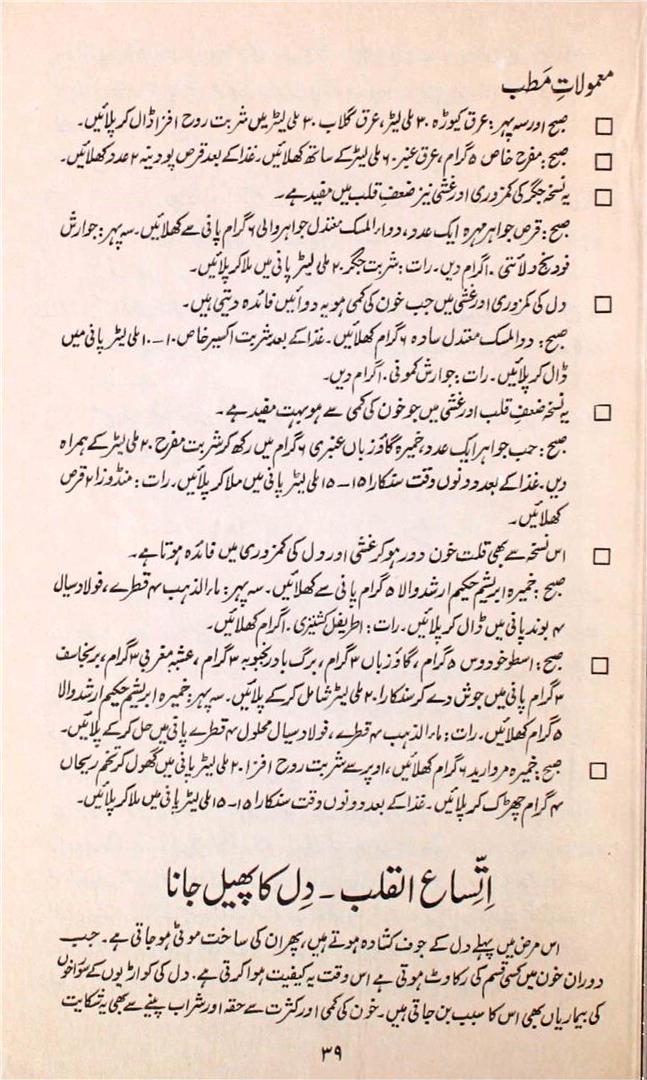 معمولاتِ مَطب
□ صبح اور سہ پہر: عرق کیوڑہ ۳۰ ملی لیٹر، عرق گلاب ۳۰ ملی لیٹر میں شربت روح افزا ڈال کر پلائیں۔
□ صبح: مفرح خاص ۵ گرام، عرق عنبر ۶۰ ملی لیٹر کے ساتھ کھلائیں۔ غذا کے بعد قرص پودینہ ۲ عدد کھلائیں۔
□ یہ نسخہ جگر کی کمزوری اور غشی نیز ضعفِ قلب میں مفید ہے۔
صبح: قرص جواہر مہرہ ایک عدد، دواء المسک معتدل جواہر والی ۶ گرام پانی سے کھلائیں۔ سہ پہر: جوارش
فودنج ولائتی ۱۰ گرام دیں۔ رات: شربت جگر ۲۰ ملی لیٹر پانی میں ملا کر پلائیں۔
□ دل کی کمزوری اور غشی میں جب خون کی کمی ہو یہ دوائیں فائدہ دیتی ہیں۔
صبح: دوا المسک معتدل سادہ ۶ گرام کھلائیں۔ غذا کے بعد شربت اکسیر خاص ۱۰–۱۰ ملی لیٹر پانی میں
ڈال کر پلائیں۔ رات: جوارش کمونی ۱۰ گرام دیں۔
□ یہ نسخہ ضعفِ قلب اور غشی میں جو خون کی کمی سے ہو بہت مفید ہے۔
صبح: حب جواہر ایک عدد، خمیرہ گاؤزباں عنبری ۶ گرام میں رکھ کر شربت مفرح ۲۰ ملی لیٹر کے ہمراہ
دیں۔ غذا کے بعد دونوں وقت سنکارا ۱۵–۱۵ ملی لیٹر پانی میں ملا کر پلائیں۔ رات: منڈوزا ۲ قرص
کھلائیں۔
□ اس نسخہ سے بھی قلت خون دور ہو کر غشی اور دل کی کمزوری میں فائدہ ہوتا ہے۔
صبح: خمیرہ ابریشم حکیم ارشد والا ۵ گرام پانی سے کھلائیں۔ سہ پہر: ماء الذہب ۴ قطرے، فولاد سیال
۴ بوند پانی میں ڈال کر پلائیں۔ رات: اطریفل کشنیزی ۱۰ گرام کھلائیں۔
□ صبح: اسطوخودوس ۵ گرام، گاؤزباں ۳ گرام، برگ بادرنجبویہ ۳ گرام، عشبہ مغربی ۳ گرام، برنجاسف
۳ گرام پانی میں جوش دے کر سنکارا ۲۰ ملی لیٹر شامل کر کے پلائیں۔ سہ پہر: خمیرہ ابریشم حکیم ارشد والا
۵ گرام کھلائیں۔ رات: ماء الذہب ۴ قطرے، فولاد سیال محلول ۴ قطرے پانی میں حل کر کے پلائیں۔
□ صبح: خمیرہ مروارید ۶ گرام کھلائیں، اوپر سے شربت روح افزا ۲۰ ملی لیٹر پانی میں گھول کر تخم ریحاں
۴ گرام چھڑک کر پلائیں۔ غذا کے بعد دونوں وقت سنکارا ۱۵–۱۵ ملی لیٹر پانی میں ملا کر پلائیں۔
اِتّساع القلب – دِل کا پھیل جانا
اس مرض میں پہلے دل کے جوف کشادہ ہوتے ہیں، پھر ان کی ساخت موٹی ہو جاتی ہے۔ جب
دورانِ خون میں کسی قسم کی رکاوٹ ہوتی ہے اس وقت یہ کیفیت ہوا کرتی ہے۔ دل کی کواڑیوں کے سوراخوں
کی بیماریاں بھی اس کا سبب بن جاتی ہیں۔ خون کی کمی اور کثرت سے حقہ اور شراب پینے سے بھی یہ شکایت
۳۹